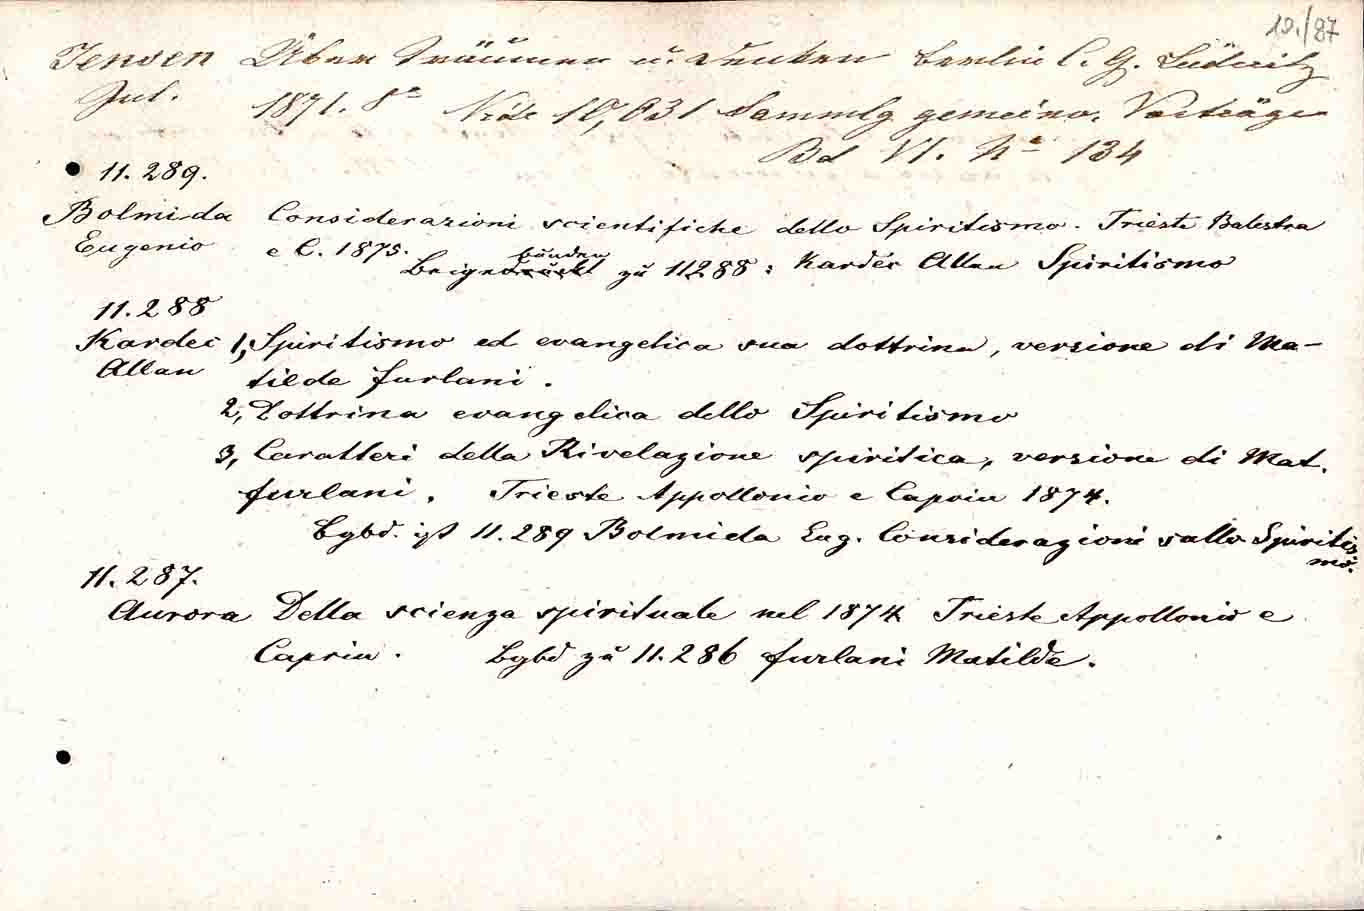 10./87
Jensen Über Träumen u. Denken Berlin C. G. Lüderitz
Jul. 1871. 8° Vide 10,031 Sammlg gemeinv. Vorträge
Bd VI. No 134
11.289.
Bolmida Considerazioni scientifiche dello Spiritismo. Trieste Balestra
Eugenio e C. 1875.
bunden
Beigedruckt zu 11288: Kardec Allan Spiritismo
11.288
Kardec 1, Spiritismo ed evangelica sua dottrina, versione di Ma-
Allan tilde Furlani.
2, Dottrina evangelica dello Spiritismo
3, Caratteri della Rivelazione spiritica, versione di Mat.
Furlani. Trieste Appollonio e Caprin 1874.
Bgbd. ist 11.289 Bolmida Eug. Considerazioni sullo Spiritis
mo.
11.287.
Aurora Della scienza spirituale nel 1874 Trieste Appollonio e
Caprin. Bgbd zu 11.286 Furlani Matilde.